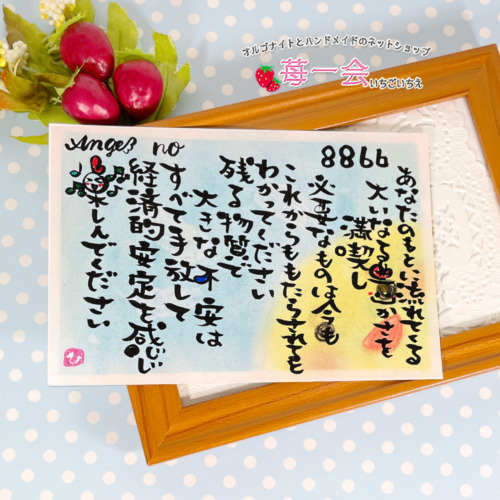 オルゴナイトとハンドメイドのネットショップ
苺一会
いちごいちえ
Angel no
8866
あなたのもとに流れてくる
大いなる豊かさを
満喫し
必要なものは今も
これからももたらされると
わかってください
残る物質で
大きな不安は
すべて手放して
経済的安定を感じ
楽しんでください